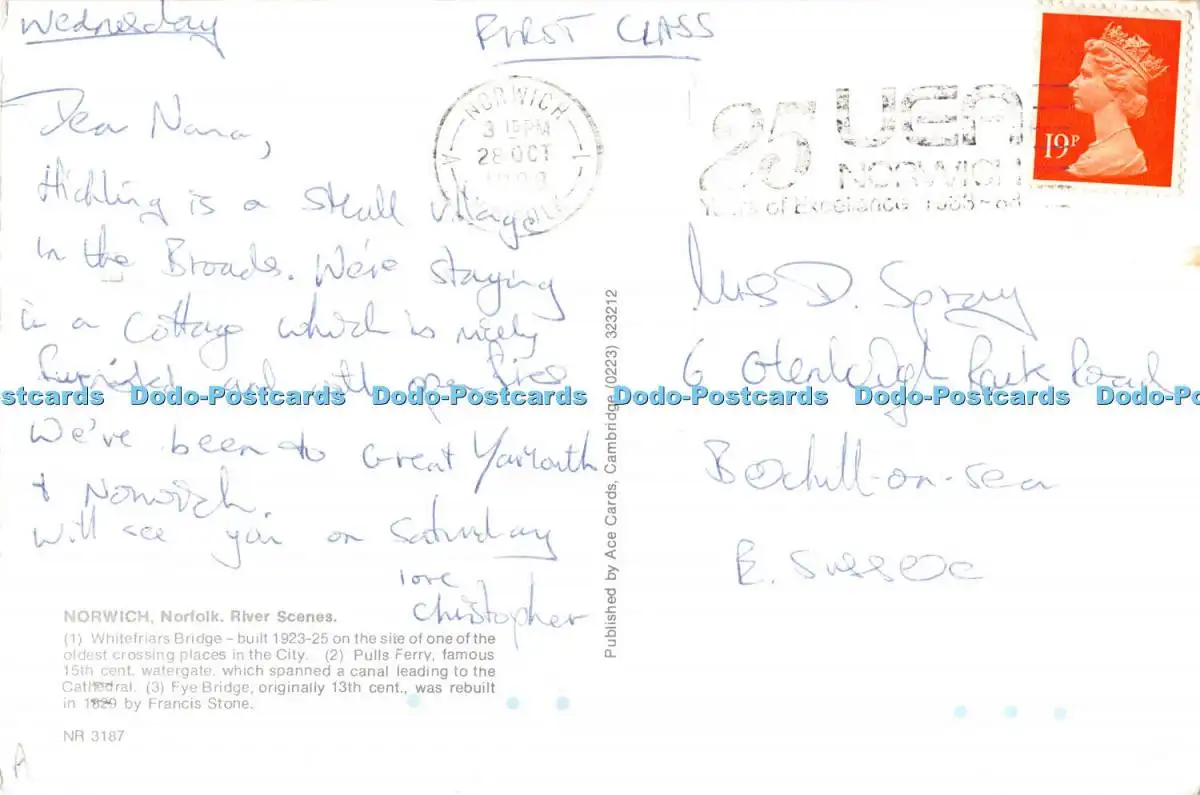 Wednesday
FIRST CLASS
Dear Nana,
Hickling is a small village
in the Broads. We're staying
in a cottage which is nicely
furnished and with open fires
We've been to Great Yarmouth
+ Norwich.
Will see you on Saturday
love
Christopher
NORWICH, Norfolk. River Scenes.
(1) Whitefriars Bridge – built 1923-25 on the site of one of the
oldest crossing places in the City. (2) Pulls Ferry, famous
15th cent. watergate, which spanned a canal leading to the
Cathedral. (3) Fye Bridge, originally 13th cent., was rebuilt
in 1829 by Francis Stone.
NR 3187
A
Published by Ace Cards, Cambridge (0223) 323212
NORWICH
3 15 PM
28 OCT
25 UEA
NORWICH
Years of Excellence
19P
Mrs D. Spray
6 Park Road
Bexhill-on-Sea
E. Sussex
Postcards Dodo-Postcards Dodo-Postcards Dodo-Postcards Dodo-Postcards Dodo-Po